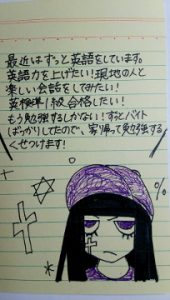 最近はずっと英語をしています。
英語力を上げたい!現地の人と
楽しい会話をしてみたい!
英検準1級合格したい!
もう勉強するしかない!ずっとバイト
ばっかりしてたので、家帰って勉強する
くせつけます!
%